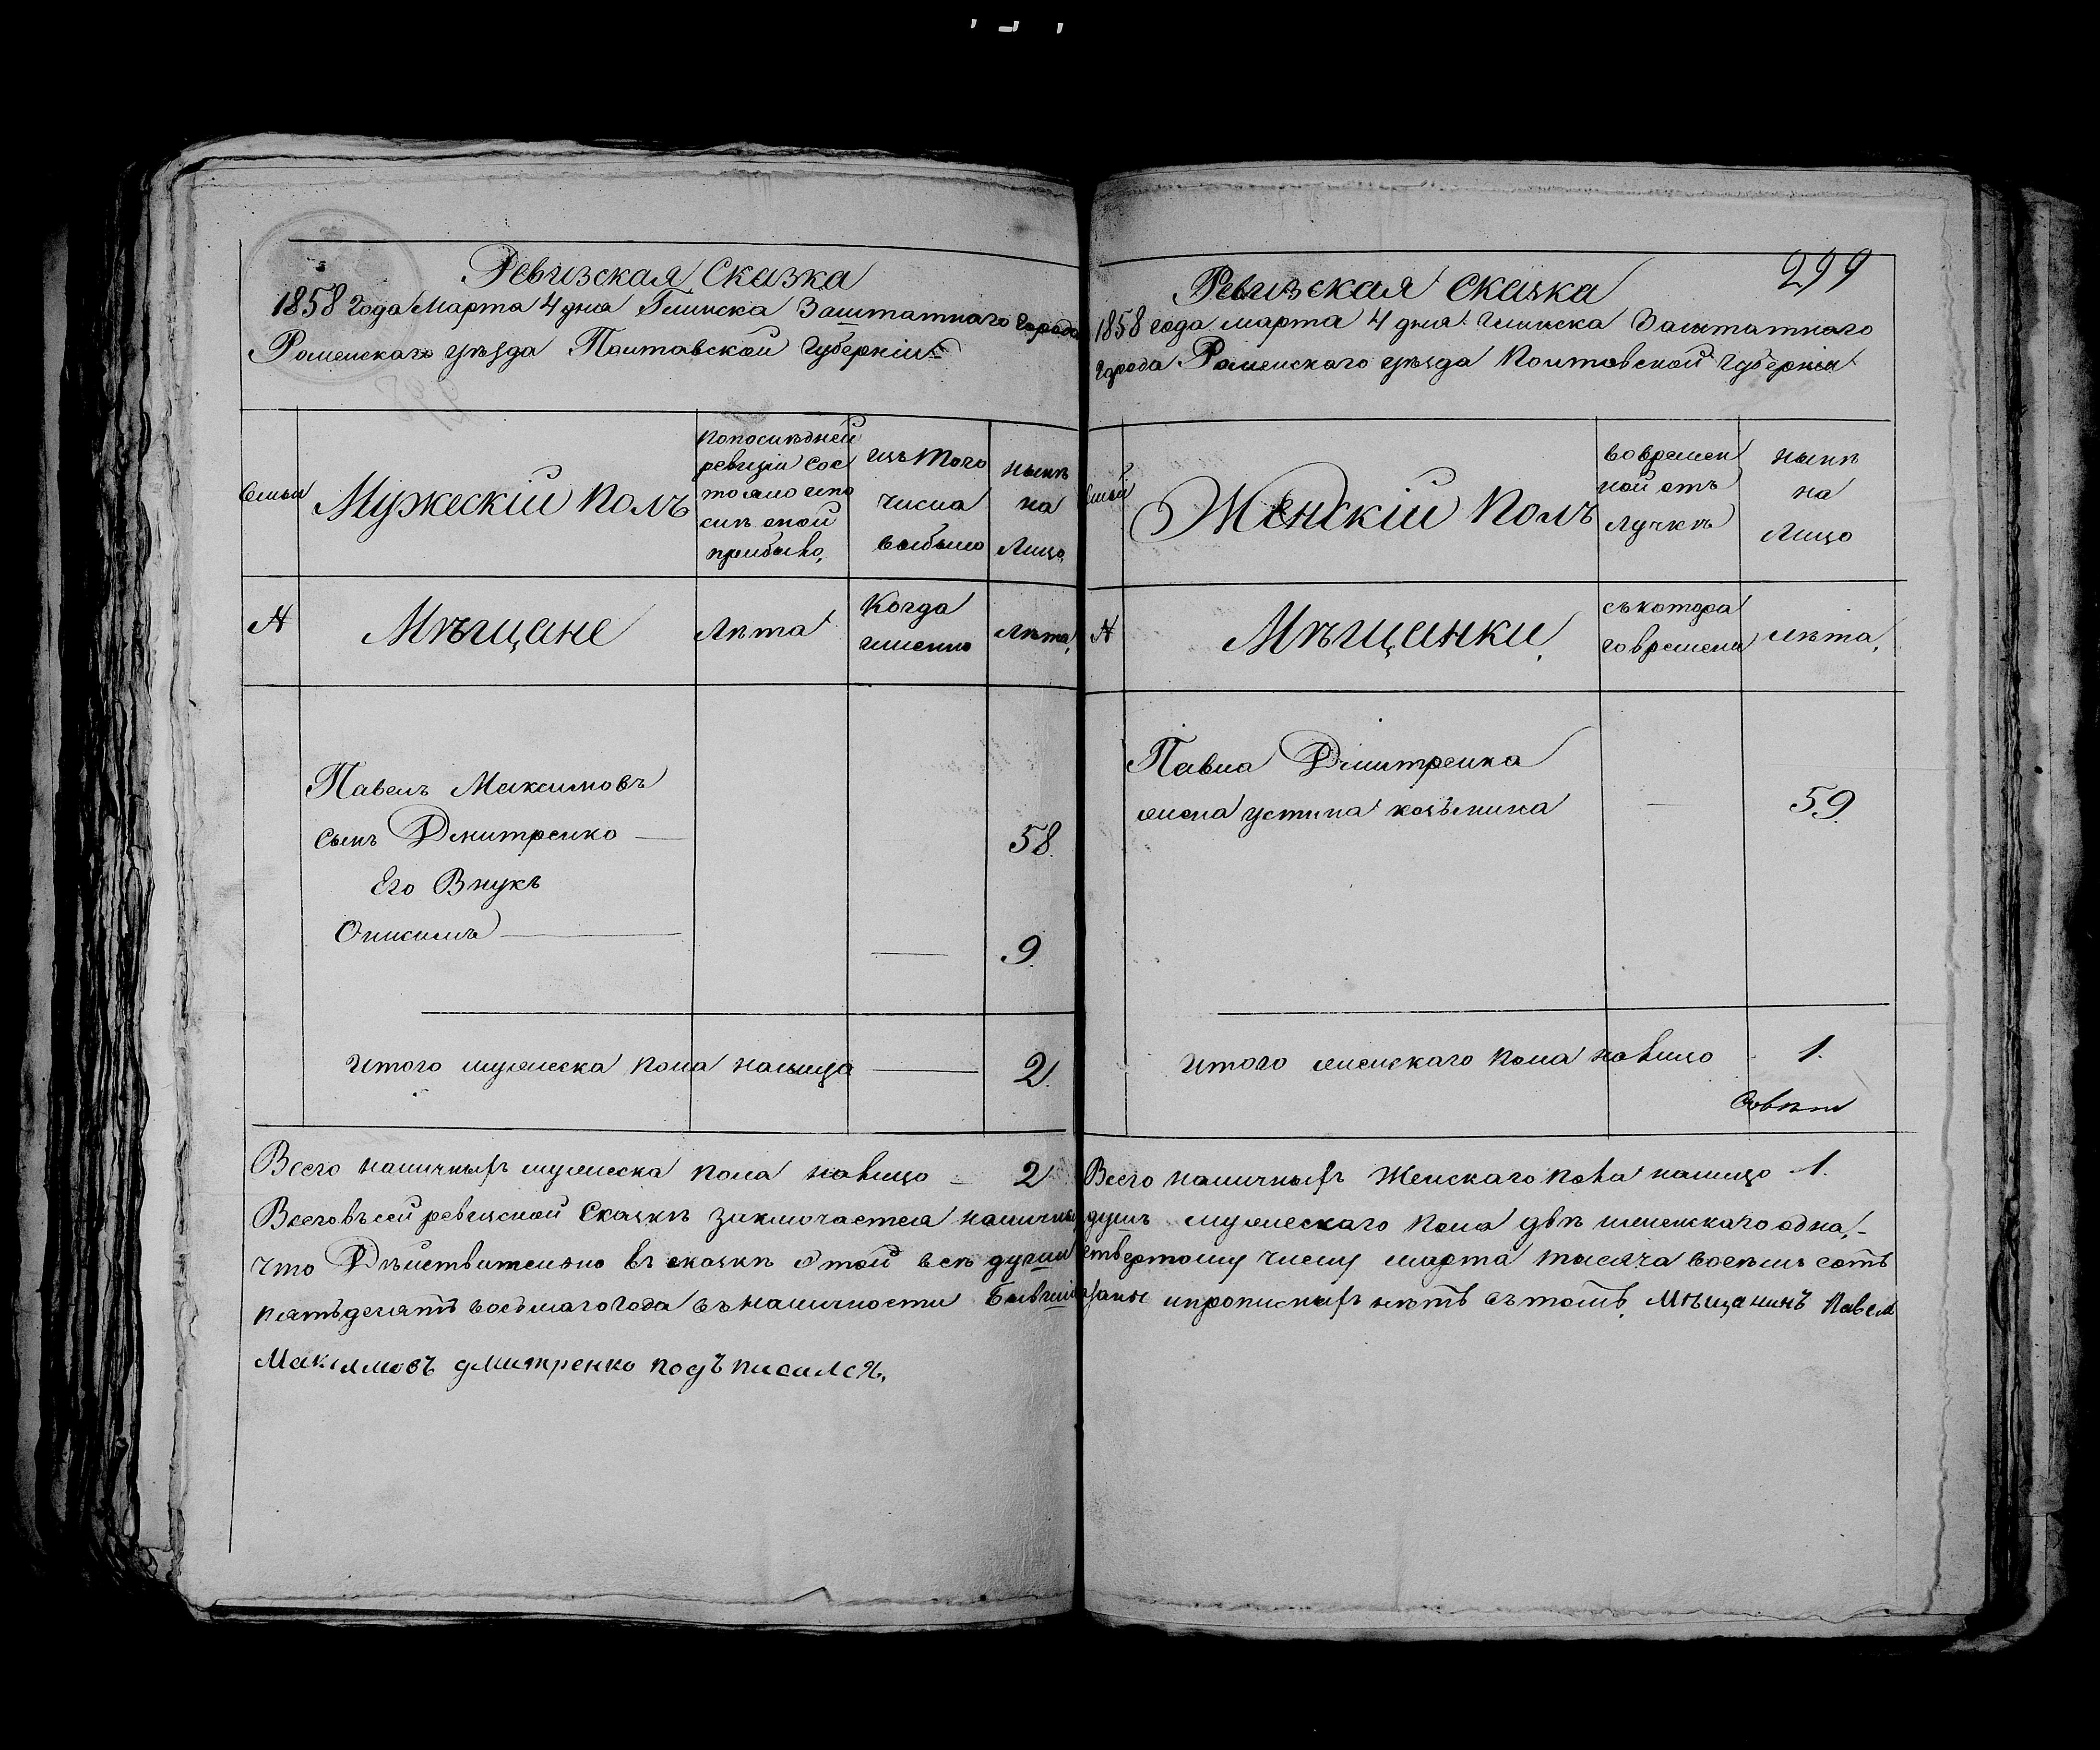 Ревизская Сказка
1858 года Марта 4 дня Глинска Заштатнаго города
Роменскаго уѣзда Полтавской Губерніи
семьи
Мужескій Полъ
по послѣдней
ревизіи сос
тояло и по
слѣ оной
прибыло,
изъ того
числа
выбыло
нынѣ
на
лицо,
№
Мѣщане
Лѣта
Когда
именно
лѣта,
Павелъ Максимовъ
сынъ Дмитренко
58.
Его Внукъ
Онисимъ
9.
Итого мужеска пола налицо
2.
Всего наличныхъ мужеска пола налицо 2
Всего въ сей ревизской Сказкѣ заключается наличны
что Дѣйствительно въ сказкѣ этой всѣ души
пятьдесятъ восьмаго года въ наличности бывшіе
Максимовъ дмитренко подъписался,
299
Ревизская Сказка
1858 года марта 4 дня Глинска Заштатнаго
города Роменскаго уѣзда Полтавской Губерніи
семьи
Женскій Полъ
во времен
ной от
лучкѣ
нынѣ
на
лицо
№
Мѣщанки,
съ котора
го времени
лѣта,
Павла Дмитренка
жена устина козьмина
59.
Итого женскаго пола налицо 1.
Всего наличныхъ Женскаго пола налицо 1.
душъ мужескаго пола двѣ женскаго одна,
четвертому числу марта тысяча восемь сотъ
и прописныхъ нѣтъ въ томъ, мѣщанинъ Павелъ